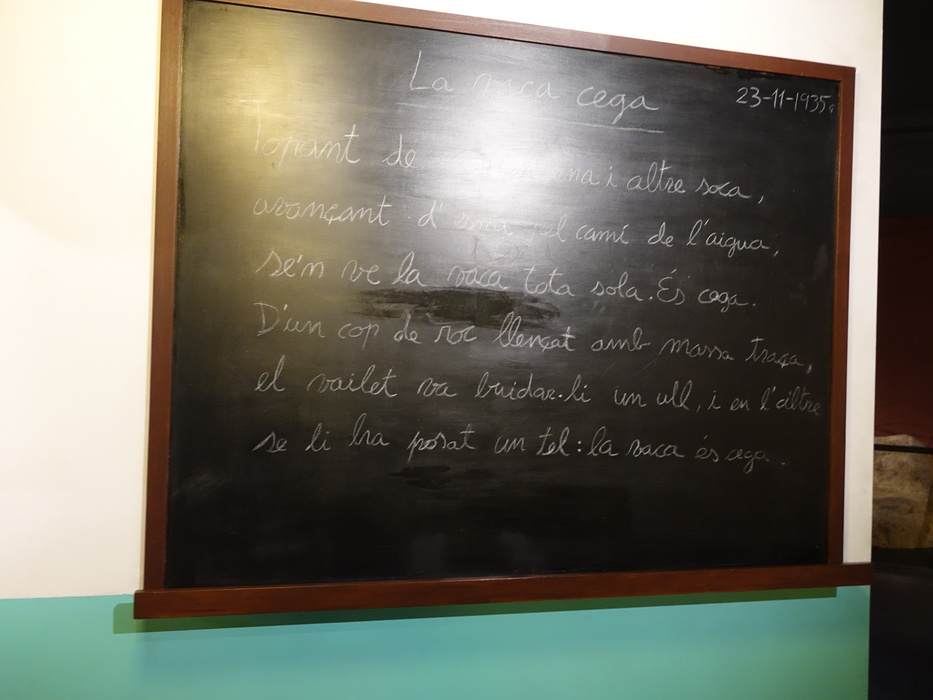 La vaca cega
23-11-1935.
Topant de una i altre soca,
avançant d'esma pel camí de l'aigua,
se'n ve la vaca tota sola. És cega.
D'un cop de roc llençat amb massa traça,
el vailet va buidar-li un ull, i en l'altre
se li ha posat un tel: la vaca és cega.